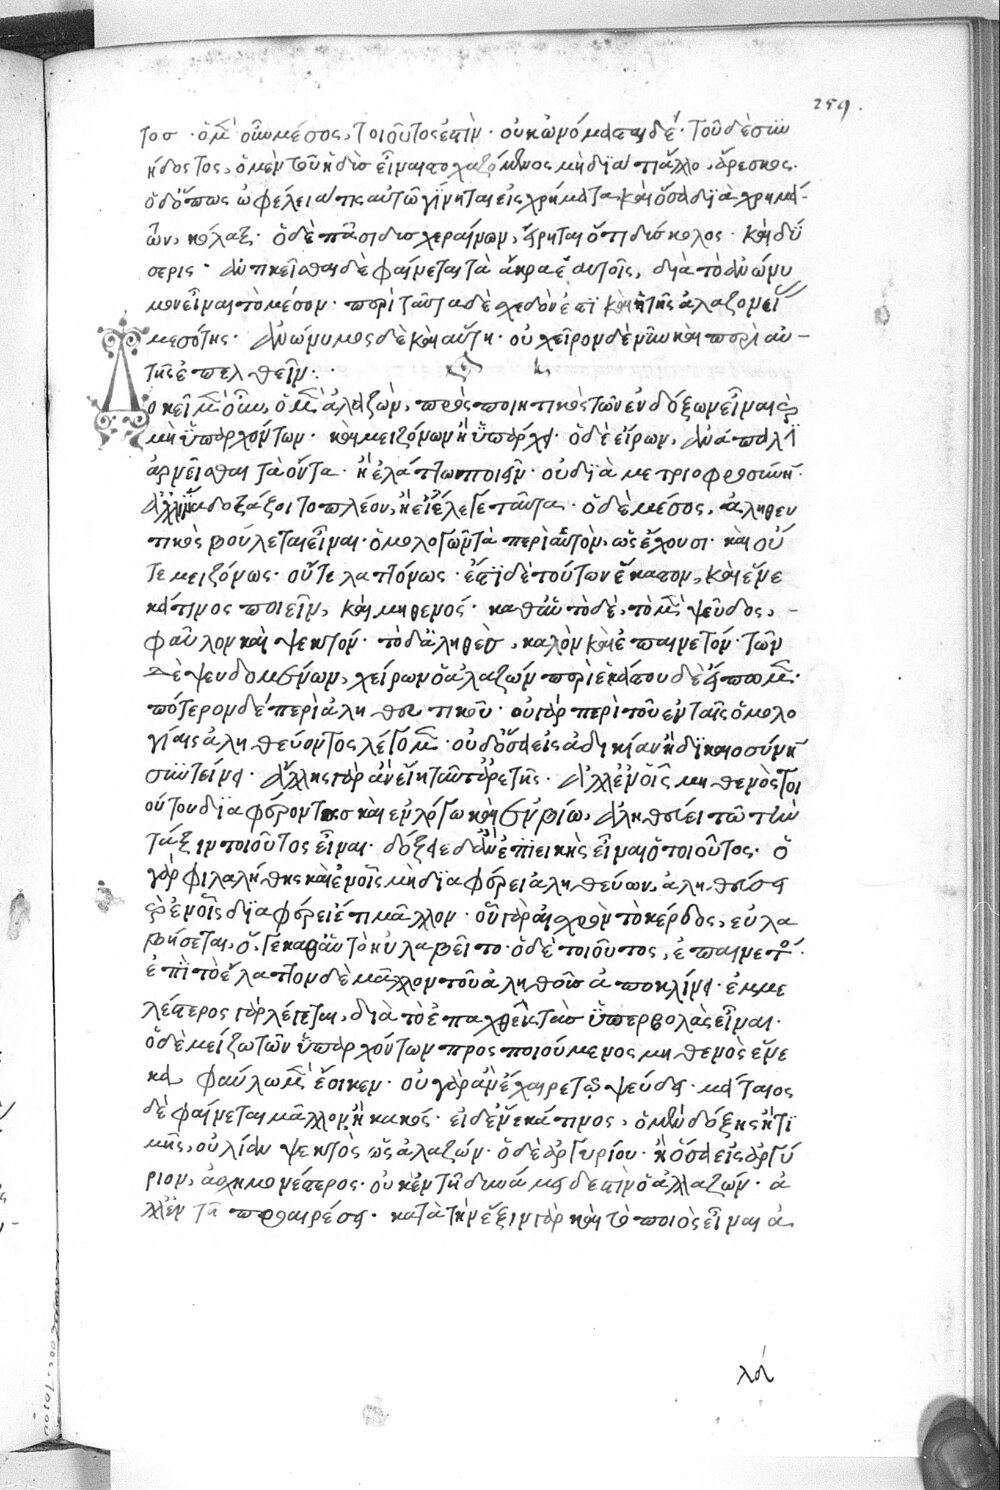 259.
τος · ὁ μὲν οὖν μέσος, τοιοῦτος ἐστὶν · οὐκ ὠνόμασται δέ · τοῦ δὲ συν
ηδύνοντος, ὁ μὲν τοῦ ἡδὺς εἶναι στοχαζόμενος μὴ διά τι ἄλλο, ἄρεσκος ·
ὁ δ' ὅπως ὠφέλειά τις αὐτῷ γίνηται εἰς χρήματα καὶ ὅσα διὰ χρημά-
των, κόλαξ · ὁ δὲ πᾶσι δυσχεραίνων, εἴρηται ὅτι δύσκολος · καὶ δύ
σερις · ἀντικεῖσθαι δὲ φαίνεται τὰ ἄκρα ἑαυτοῖς, διὰ τὸ ἀνώνυ
μον εἶναι τὸ μέσον · περὶ ταῦτα δὲ σχεδόν ἐστι καὶ ἡ τῆς ἀλαζονεί
μεσότης · ἀνώνυμος δὲ καὶ αὕτη · οὐ χεῖρον δὲ νῦν καὶ περὶ αὐ-
τῆς ἐπελθεῖν : ·
Δοκεῖ μὲν οὖν, ὁ μὲν ἀλαζών, προσποιητικὸς τῶν ἐνδόξων εἶναι καὶ
μὴ ὑπαρχόντων · καὶ μειζόνων ἢ ὑπάρχει · ὁ δὲ εἴρων, ἀνάπαλιν
ἀρνεῖσθαι τὰ ὄντα · ἢ ἐλάττω ποιεῖν · οὐ διὰ μετριοφροσύνην ·
δοξάζοιτο πλέον, ἢ εἰ ἔλεγε ταῦτα · ὁ δὲ μέσος, ἀληθευ
τικὸς βούλεται εἶναι · ὁμολογῶν τὰ περὶ αὑτὸν, ὡς ἔχουσι · καὶ οὔ
τε μειζόνως · οὔτε λαττόνως · ἔστι δὲ τούτων ἕκαστον, καὶ ἕνε
κά τινος ποιεῖν, καὶ μηθενός · καθ' αὑτὸ δὲ, τὸ μὲν ψεῦδος, -
φαῦλον καὶ ψεκτόν · τὸ δ' ἀληθὲς, καλὸν καὶ ἐπαινετόν · τῶν
δὲ ψευδομένων, χείρων ὁ ἀλαζών περὶ ἑκάστου δὲ εἴπωμεν ·
πότερον δέ περὶ ἀληθευτικοῦ · οὐ γὰρ περὶ τοῦ ἐν ταῖς ὁμολο
γίαις ἀληθεύοντος λέγομεν · οὐδ' ὅσα εἰς ἀδικίαν ἢ δικαιοσύνην
συντείνει · ἄλλης γὰρ ἂν εἴη ταῦτ' ἀρετῆς · ἀλλ' ἐν οἷς μηθενὸς τοι
ούτου διαφέροντος καὶ ἐν λόγω καὶ ἐν βίω, ἀληθεύει τῶ τὴν
τάξιν τοιοῦτος εἶναι · δόξειε δ' ἂν ἐπιεικὴς εἶναι ὁ τοιοῦτος · ὁ
γὰρ φιλαλήθης καὶ ἐν οἷς μὴ διαφέρει ἀληθεύων, ἀληθεύσει
καὶ ἐν οἷς διαφέρει ἔτι μᾶλλον · οὗ γὰρ αἰσχρὸν τὸ κέρδος, εὐλα
βήσεται, ὅ γε καθ' αὑτὸ ηὐλαβεῖτο · ὁ δὲ τοιοῦτος, ἐπαινετός ·
ἐπὶ τὸ ἔλαττον δὲ μᾶλλον τοῦ ἀληθοῦς ἀποκλίνει · ἐμμε
λέστερος γὰρ λέγεται, διὰ τὸ ἐπαχθεῖς τὰς ὑπερβολὰς εἶναι ·
ὁ δὲ μείζω τῶν ὑπαρχόντων προσποιούμενος μηθενὸς ἕνε
κα, φαύλω μὲν ἔοικεν · οὐ γὰρ ἂν ἔχαιρε τῷ ψεύδει · μάταιος
δὲ φαίνεται μᾶλλον, ἢ κακός · εἰ δ' ἕνεκά τινος, ὁ μὲν δόξης ἢ τι
μῆς, οὐ λίαν ψεκτὸς ὡς ἀλαζών · ὁ δὲ ἀργυρίου · ἢ ὅσα εἰς ἀργύ
ριον, ἀσχημονέστερος · οὐκ ἐν τῇ δυνάμει δ' ἐστὶν ὁ ἀλαζών · ἀ
λλ' ἐν τῇ προαιρέσει · κατὰ τὴν ἕξιν γὰρ καὶ τὸ ποιὸς εἶναι ἀ
λα